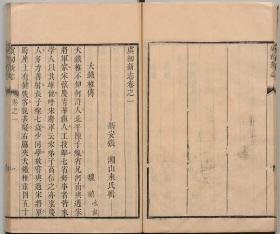 虞初新志卷之一
新安張 潮山來氏輯
大鐵椎傳
魏 禧 冰叔
大鐵椎不知何許人北平陳子燦省兄河南與遇宋
將軍家宋懷慶青華鎮人工技擊七省好事者皆來
學人以其雄健呼宋將軍云宋弟子高信之亦懷慶
人多力善射長子燦七歲少同學故嘗與過宋將軍
時座上有健啖客貌甚寢右脅夾大鐵椎重四五十
虞初新志
卷之一